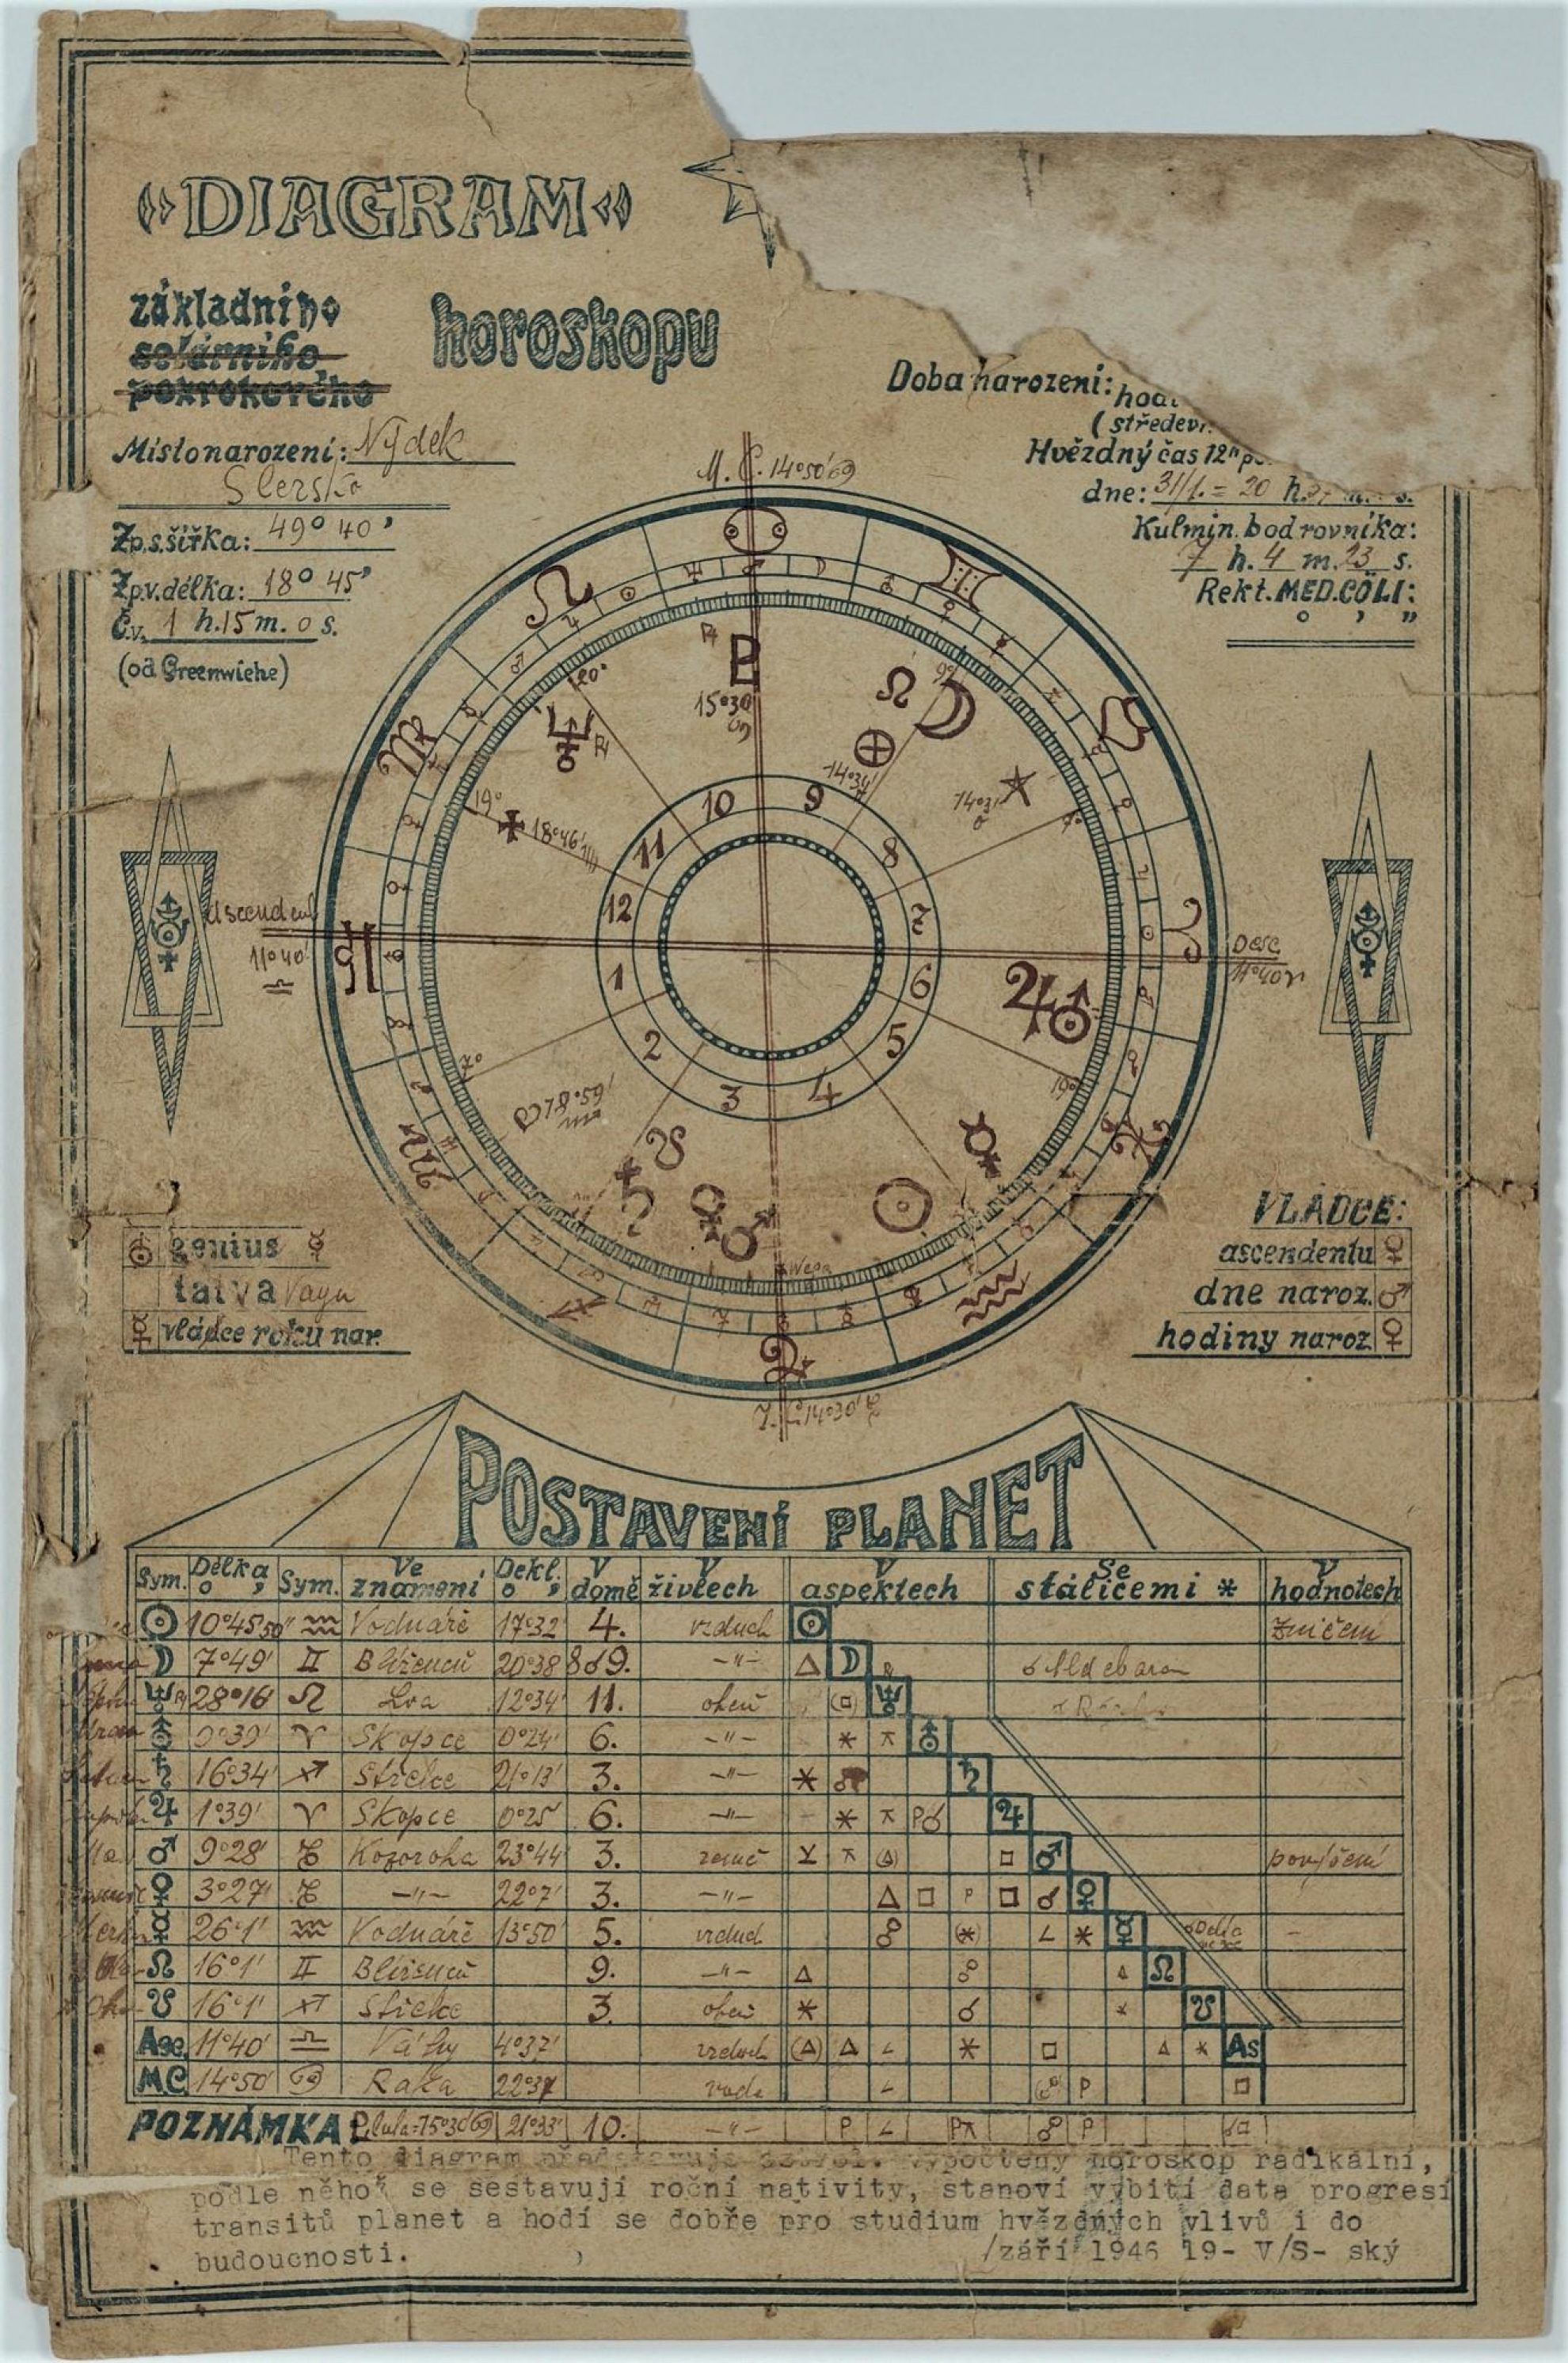 »DIAGRAM«
základního
solárního
pokrokového
horoskopu
Místo narození: Nýdek
Zp. s. šířka: 49° 40'
Zp. v. délka: 18° 45'
Č. v. 1 h. 15 m. 0 s.
(od Greenwiche)
Doba narození:
(středoev.
Hvězdný čas 12ʰ
dne: 31/1. = 20 h.
Kulmin. bod rovníka:
7 h. 4 m. 23 s.
Rekt. MED. CÖLI:
° ' "
M. C. 14°50' ♋
♌ ♋ ♊
20°
15°30'
♋
9°
14°34'
14°31'
♉
♍
19°
18°46' ♍
Ascendent
11°40'
♎
10 9
11 8
12 7
1 6
2 5
3 4
Desc
11°40' ♈
7°
18°59'
♏
19°
♏ ♐ ♑ ♒ ♓ ♈
I. C. 14°50' ♑
♅ genius ☿
tatva Vayu
☿ vládce roku nar.
VLÁDCE:
ascendentu ♀
dne naroz. ♂
hodiny naroz. ♀
POSTAVENÍ PLANET
Sym. Délka ° ' Sym. Ve znamení Dekl. ° ' V domě V živlech V aspektech Se stálicemi * V hodnotech
☉ 10°45'50" ♒ Vodnáře 17°32' 4. vzduch ☉ Zničení
☽ 7°49' ♊ Blíženců 20°38' 8 ☌ 9. -"- △ ☽ ☌ Aldebaran
♆ 28°16' ♌ Lva 12°34' 11. oheň (□) ♆
♅ 0°39' ♈ Skopce 0°24' 6. -"- * ⚻ ♅
♄ 16°34' ♐ Střelce 21°13' 3. -"- * ☍ ♄
♃ 1°39' ♈ Skopce 0°25' 6. -"- * ⚻ P☌ ♃
♂ 9°28' ♑ Kozoroha 23°44' 3. země ⚺ ⚻ (△) □ ♂ povýšení
♀ 3°27' ♑ -"- 22°7' 3. -"- △ □ P □ ☌ ♀
☿ 26°1' ♒ Vodnáře 13°50' 5. vzduch ☍ (*) ∠ * ☿
☊ 16°1' ♊ Blíženců 9. -"- △ ☍ △ ☊
☋ 16°1' ♐ Střelce 3. oheň * ☌ * ☋
Asc. 11°40' ♎ Váhy 4°37' vzduch (△) △ ∠ * □ △ * As
MC 14°50' ♋ Raka 22°37' voda ∠ (☍) P □
POZNÁMKA: Pluto = 15°30' ♋ 21°33' 10. -"- P ∠ P⚻ ☍ P ☌□
Tento diagram představuje vypočtený horoskop radikální,
podle něhož se sestavují roční nativity, stanoví vybití data progresí
transitů planet a hodí se dobře pro studium hvězdných vlivů i do
budoucnosti. /září 1946 19- V/S- ský